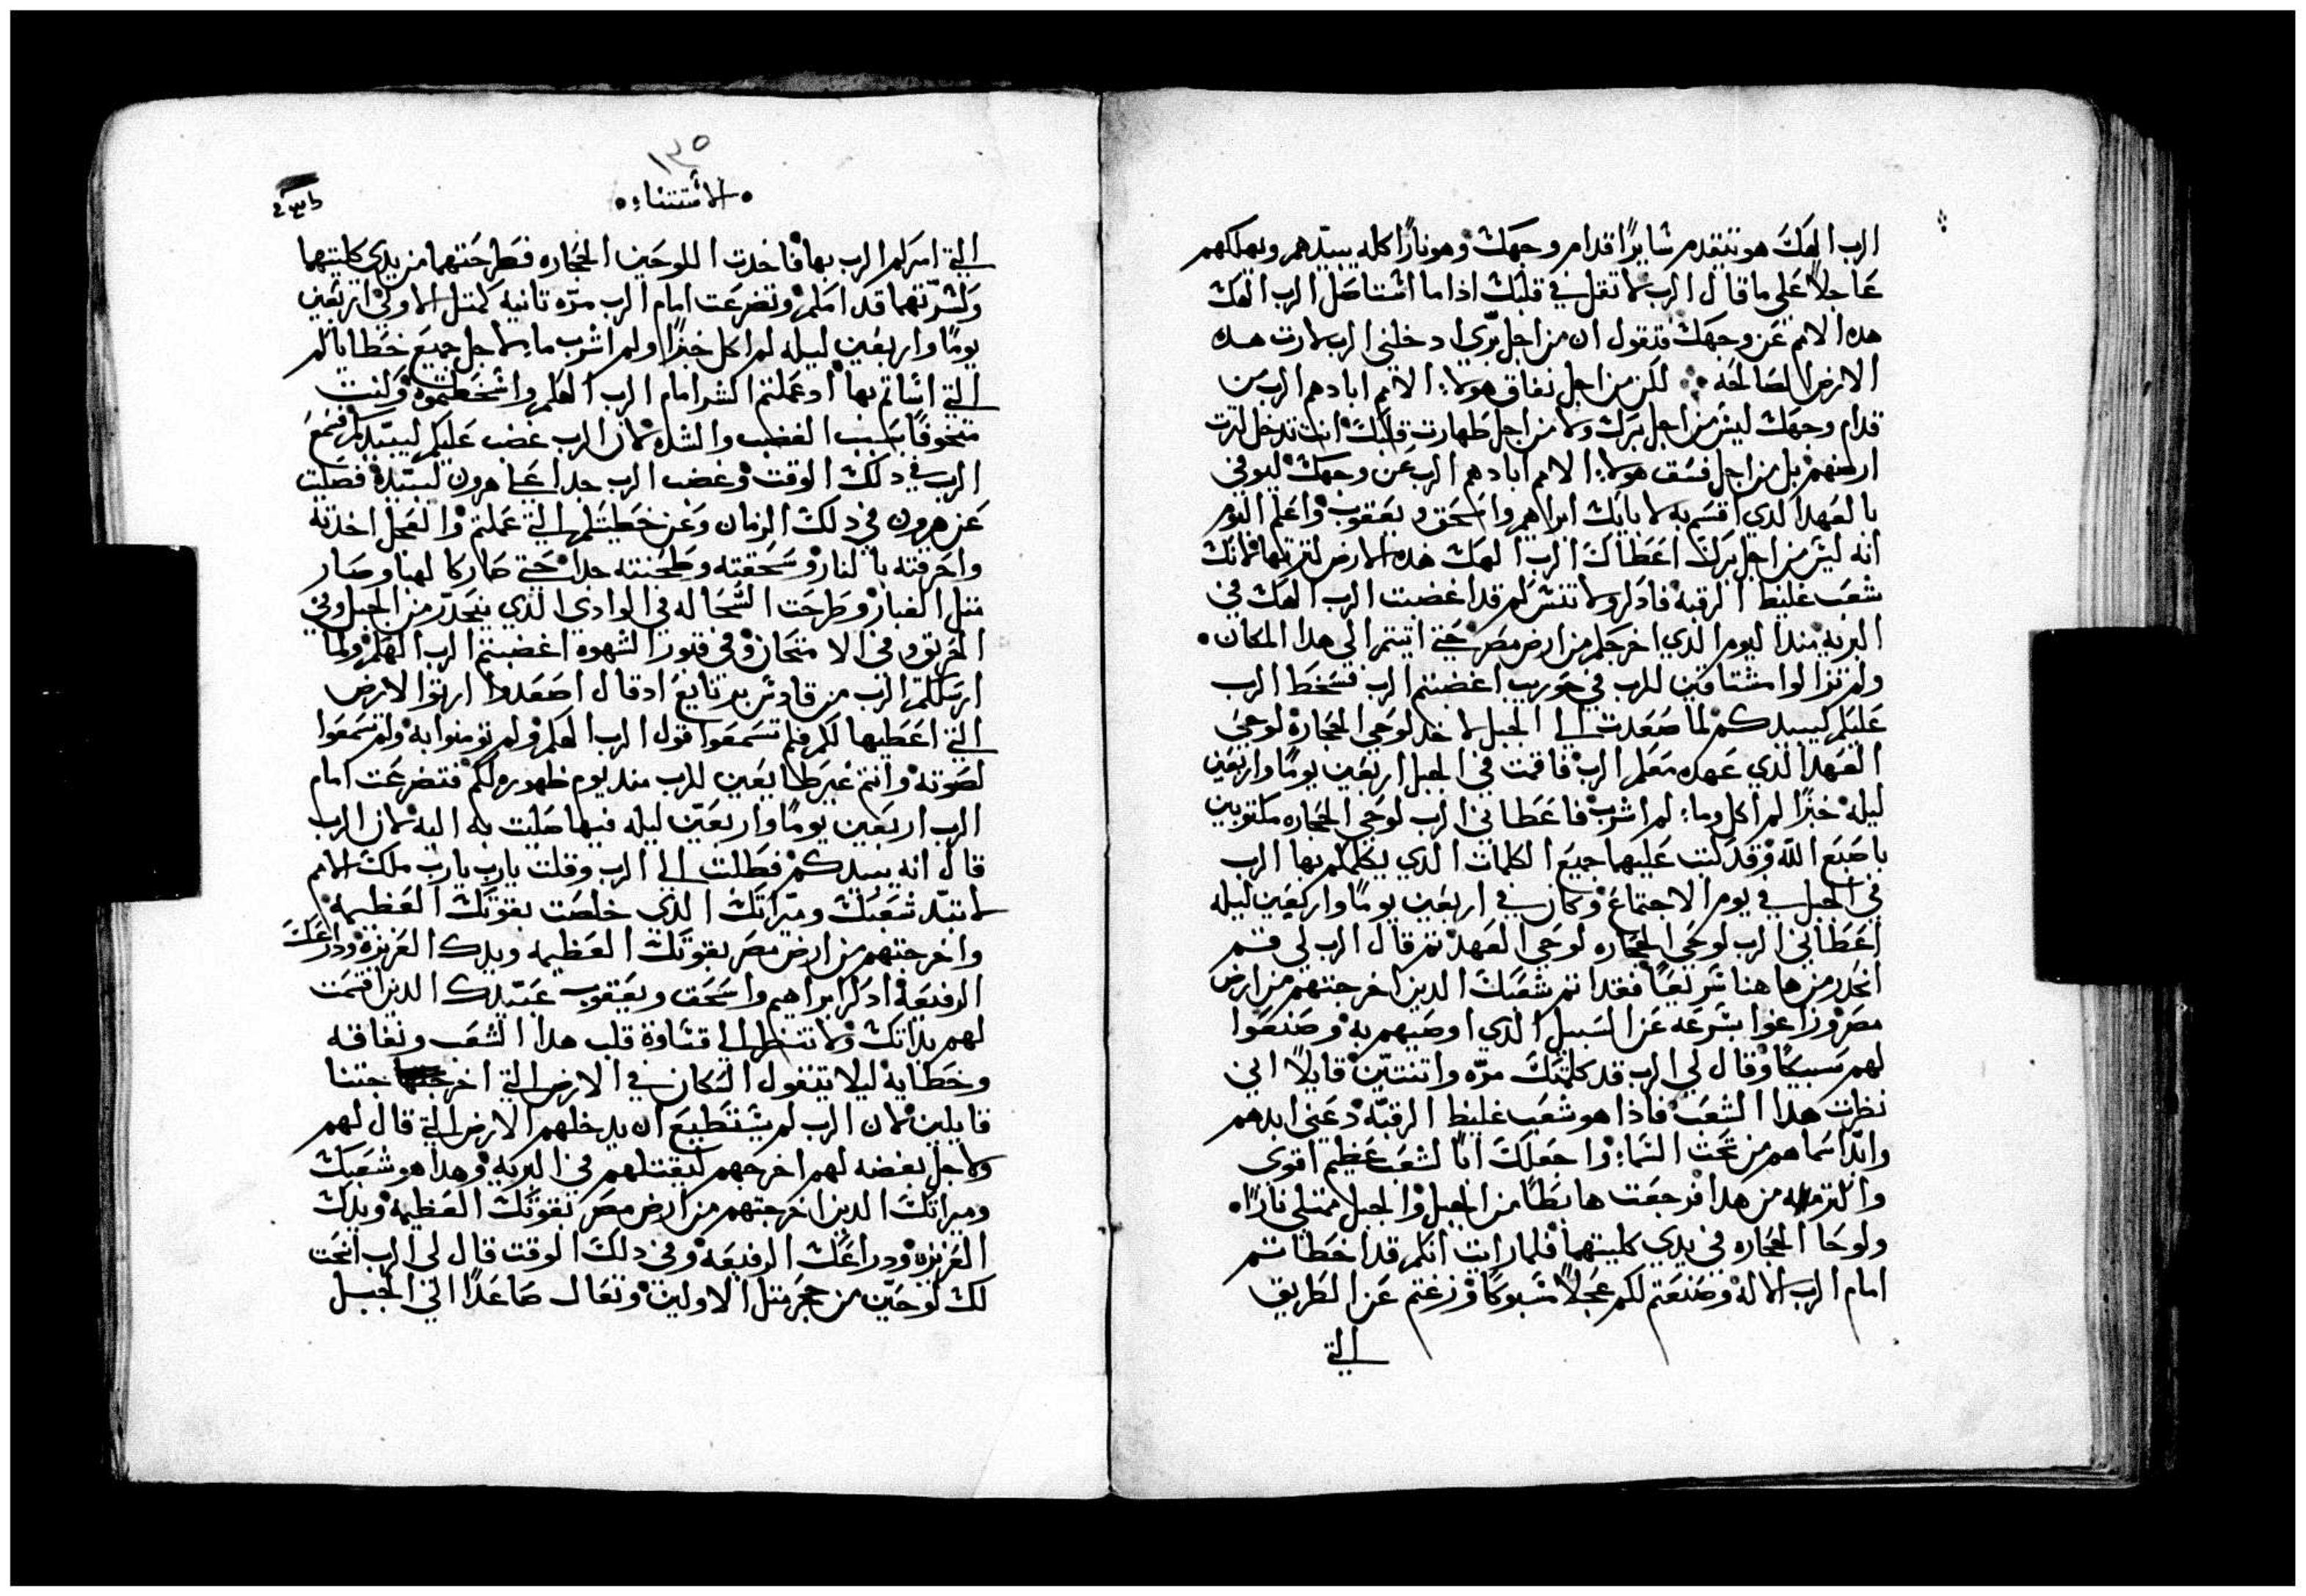 الرب الهك هو يتقدم سايرًا قدام وجهك وهو نارًا اكله يبيدهم ويهلكهم
عاجلاً على ما قال الرب لا تقل في قلبك اذا ما استاصل الرب الهك
هده الامم عن وجهك فتقول ان من اجل بري ادخلني الرب لارت هده
الارض الصالحه لكن من اجل نفاق هولاء الامم ابادهم الرب من
قدام وجهك ليس من اجل برك ولا من اجل طهارت قلبك انت تدخل لترت
ارضهم بل من اجل فسق هولاء الامم ابادهم الرب عن وجهك ليوفي
بالعهد الدي اقسم به لابايك ابراهم واسحق ويعقوب واعلم اليوم
انه ليس من اجل برك اعطاك الرب الهك هده الارض لترتها لانك
شعب غليظ الرقبه فادكر ولا تنسى كم قد اغضبت الرب الهك في
البريه مند اليوم الدي اخرجكم من ارض مصر حتى اتيتم الى هدا المكان
ولم تزالوا مشتاقين للرب في حوريب اغضبتم الرب فسخط الرب
عليكم ليبيدكم لما صعدت الى الجبل لاخد لوحي الحجاره لوحي
العهد الدي عهده معكم الرب فاقمت في الجبل اربعين يومًا واربعين
ليله خبزًا لم اكل وماء لم اشرب فاعطاني الرب لوحي الحجاره مكتوبين
باصبع الله وقد كتبت عليهما جميع الكلمات الدي يكلمكم بها الرب
في الجبل في يوم الاجتماع وكان في اربعين يومًا واربعين ليله
اعطاني الرب لوحي الحجاره لوحي العهد تم قال الرب لي قم
انحدر من هاهنا سريعًا فقد اتم شعبك الدين اخرجتهم من ارض
مصر وزاغوا بسرعه عن السبيل الدي اوصيهم به وصنعوا
لهم سبيكًا وقال لي الرب قد كلمتك مره واتنتين قايلاً اني
نظرت هدا الشعب فاذا هو شعب غليظ الرقبه دعني ابدهم
وابد اسماهم من تحت السماء واجعلك ابًا لشعب عظيم اقوى
واكتر من هدا فرجعت هابطًا من الجبل والجبل ممتلي نارًا
ولوحا الحجاره في يدي كليتهما فلما رايت انكم قد اخطاتم
امام الرب الاله وصنعتم لكم عجلاً مسبوكًا وزغتم عن الطريق
التي
١٣٥
الاستتناء
التي امركم الرب بها فاخدت اللوحين الحجاره فطرحتهما من يدي كليتهما
وكسرتهما قدامكم وتضرعت امام الرب مره تانيه كمتل الاولى اربعين
يومًا واربعين ليله لم اكل خبزًا ولم اشرب ماء لاجل جميع خطاياكم
التي اساتم بها اد عملتم الشر امام الرب الهكم واسخطتموه وكنت
متخوفًا بسبب الغضب والشده لان الرب غضب عليكم ليبيدكم فسمع
الرب في دلك الوقت وغضب الرب جدا على هرون ليبيده فصليت
عن هرون في دلك الزمان وعن خطيتكم التي عملتم والعجل اخدته
واحرقته بالنار وسحقته وطحنته جدا حتى صار كالهبا وصار
متل الغبار وطرحت السحاله في الوادي الدي ينحدر من الجبل وفي
الحريق وفي الامتحان وفي قبور الشهوه اغضبتم الرب الهكم ولما
ارسلكم الرب من قادش برنايع اد قال اصعدوا ارتوا الارض
التي اعطيها لكم فلم تسمعوا قول الرب الهكم ولم تومنوا به ولم تسمعوا
لصوته وانتم غير طايعين للرب مند يوم ظهوره لكم فتضرعت امام
الرب اربعين يومًا واربعين ليله فيما صليت به اليه لان الرب
قال انه يبيدكم فطلبت الى الرب وقلت يارب يارب ملك الامم
لا تبيد شعبك وميراتك الدي خلصت بقوتك العظيمه
واخرجتهم من ارض مصر بقوتك العظيمه ويدك العزيزه ودراعك
الرفيعه ادكر ابراهيم واسحق ويعقوب عبيدك الدين اقسمت
لهم بداتك ولا تنظر الى قساوة قلب هدا الشعب ونفاقه
وخطايه ليلا يتقول السكان في الارض التي اخرجتنا
قايلين لان الرب لم يستطيع ان يدخلهم الارض التي قال لهم
ولاجل بغضه لهم اخرجهم ليقتلهم في البريه وهدا هو شعبك
وميراتك الدين اخرجتهم من ارض مصر بقوتك العظيمه وبيدك
العزيزه ودراعك الرفيعه وفي دلك الوقت قال لي الرب انحت
لك لوحين من حجر متل الاولين وتعال صاعدًا الي الجبل